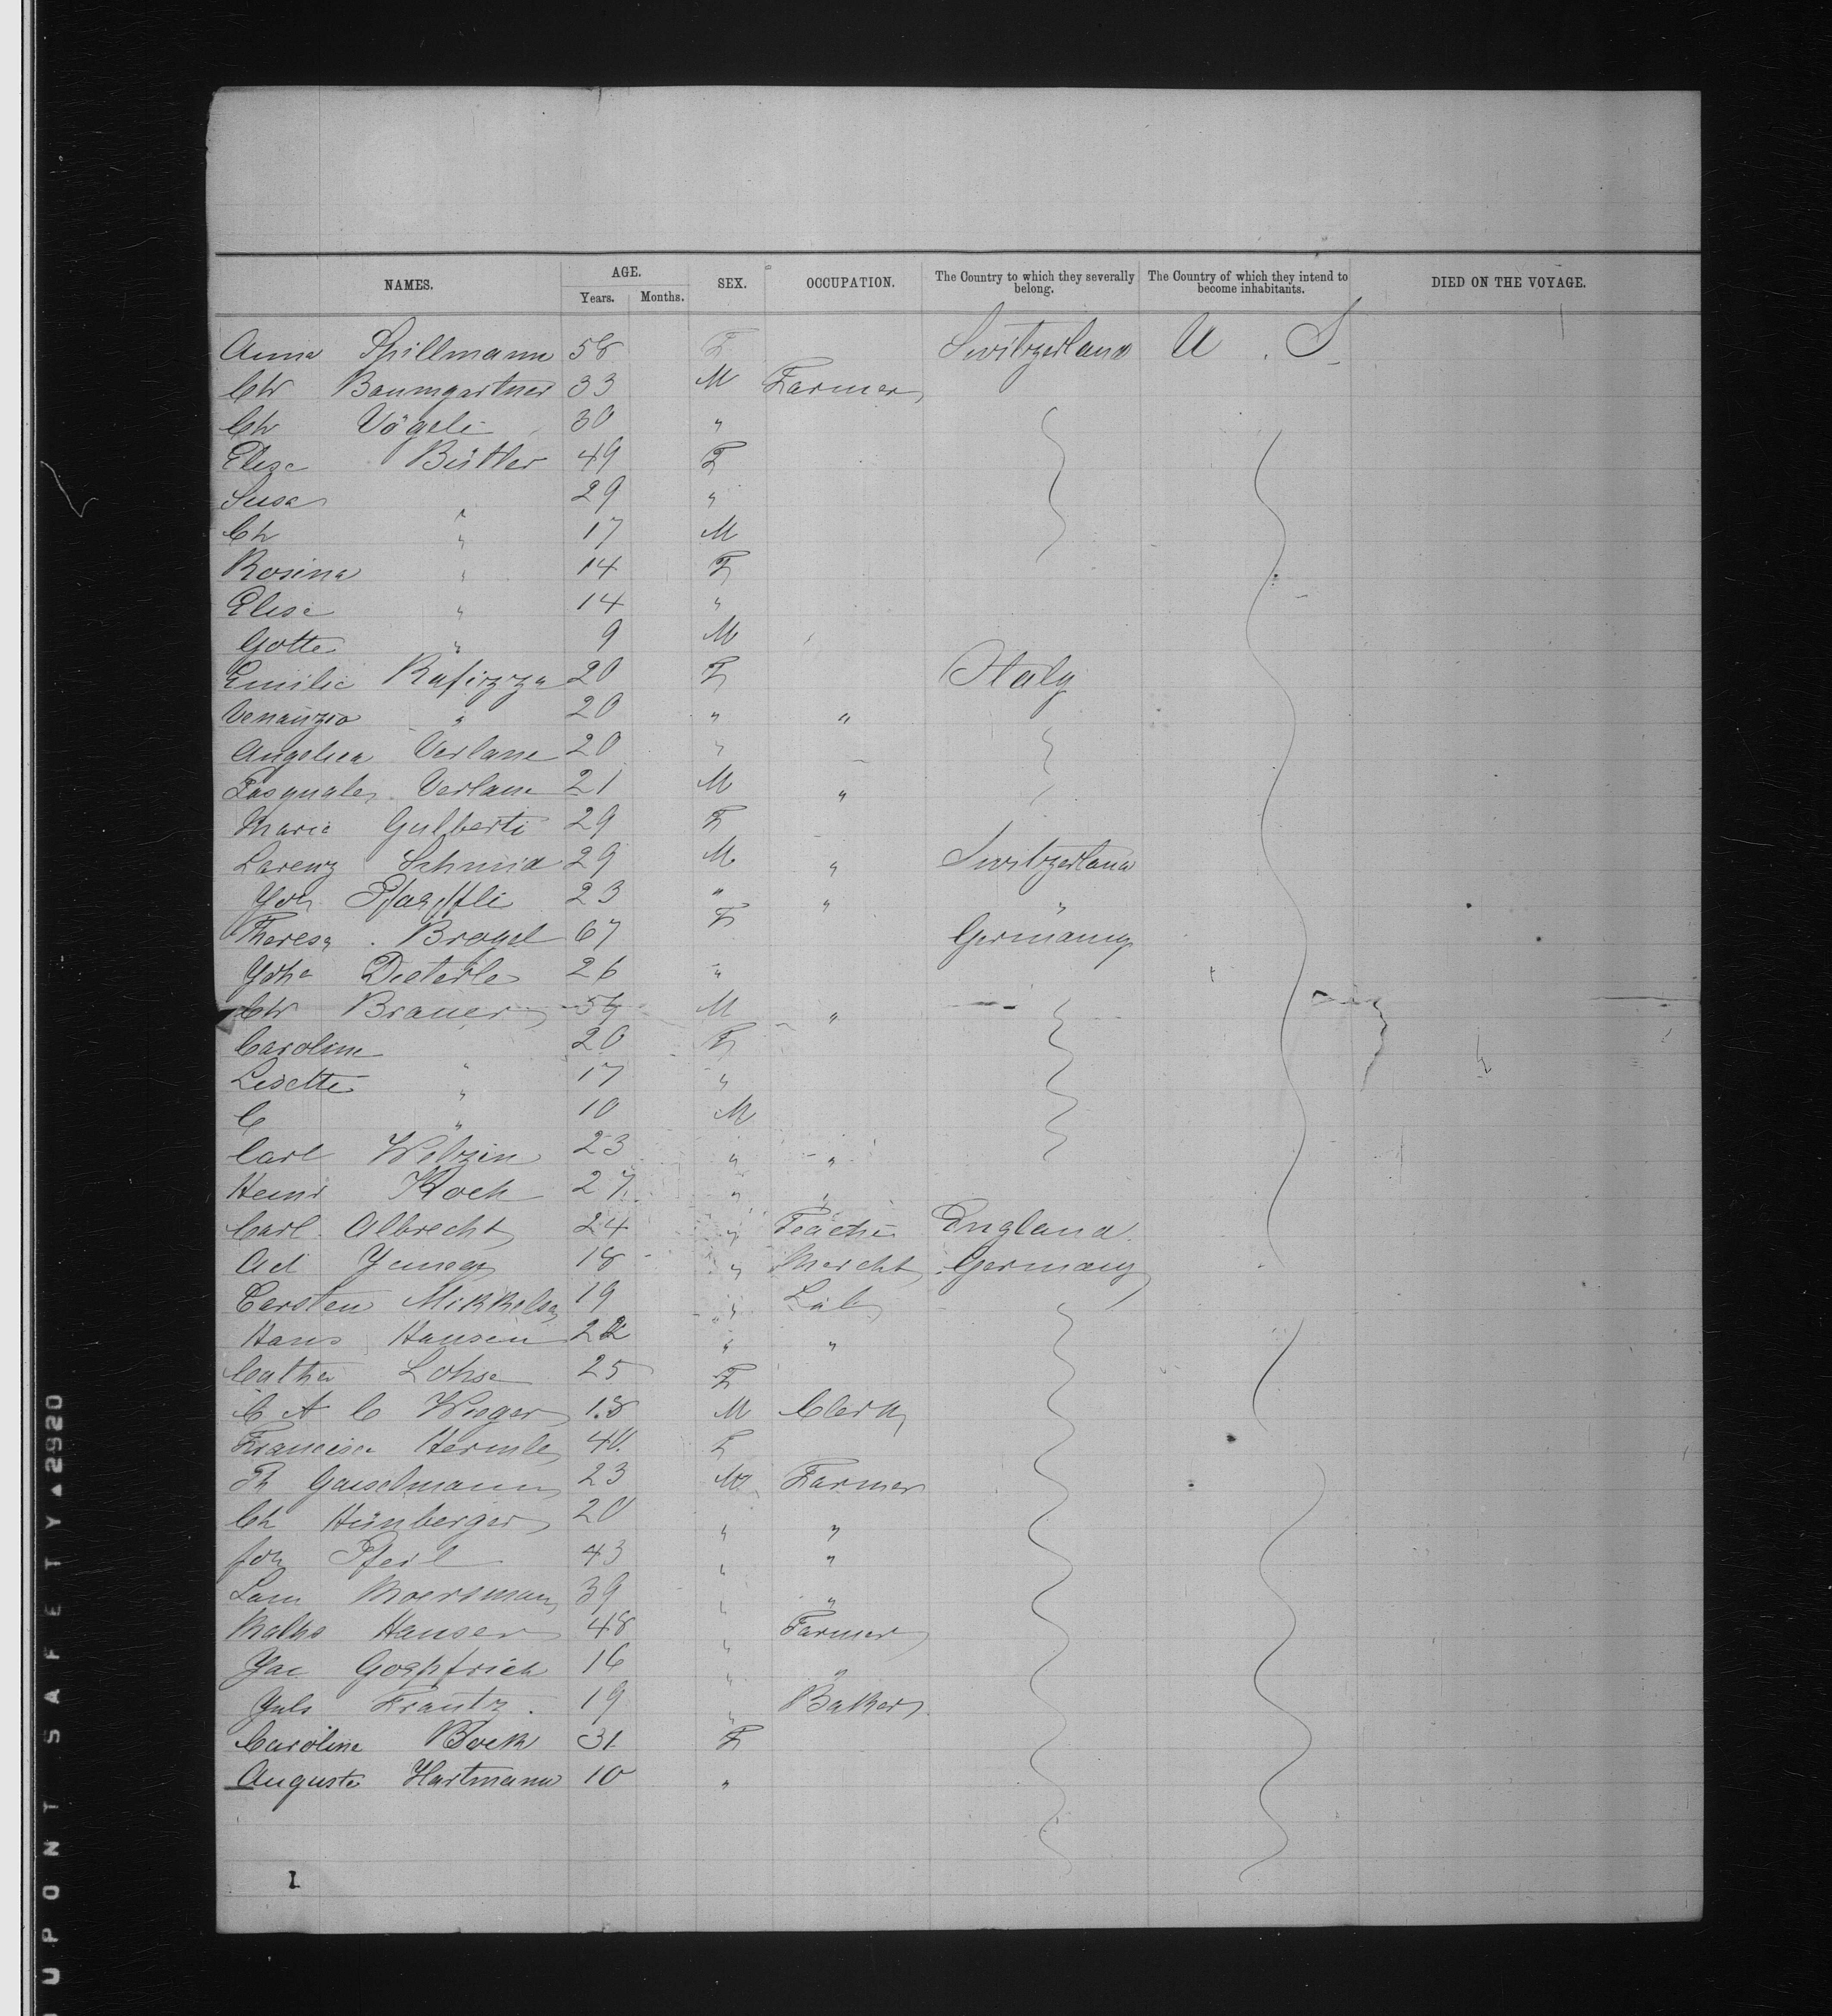 NAMES. AGE. Years. Months. SEX. OCCUPATION. The Country to which they severally belong. The Country of which they intend to become inhabitants. DIED ON THE VOYAGE.
Anna Spillmann 58 F Switzerland U. S
Chr Baumgartner 33 M Farmer
Ch Vögeli 30 "
Elise Bütler 49 F
Susa " 29 "
Ch " 17 M
Rosina " 14 F
Elise " 14 "
Gotte " 9 M
Emilie Rafizza 20 F Italy
Venanzio " 20 " "
Angelica Verlane 20 "
Pasquale Verlane 21 M "
Maria Gulberti 29 F
Lorenz Schmid 29 M " Switzerland
Joh 23 " " "
Theresa Brogel 67 F Germany
Joha Dieterle 26 "
Chr Brauer M "
Caroline " 20 F
Lisette " 17 "
C " 10 M
Carl Welzin 23 " "
Heinr Koch 27 " "
Carl Albrecht 24 " Teacher England
Ad 18 " Mercht Germany
Carsten Mikkelsen 19 " Lab
Hans Hansen 22 " "
Catha Lohse 25 F
C A C Wieger 18 M Clerk
Francisca Hermle 40 F
Ph Gaiselmann 23 M Farmer
Ch Hünberger 20 " "
Joh Pfeil 43 " "
39 " "
Hansen 48 " Farmer
Jac Goepfrich 16 " "
Juls Frantz 19 " Baker
Caroline Bock 31 F
Auguste Hartmann 10 "
I
DUPONT SAFETY ▲ 2920